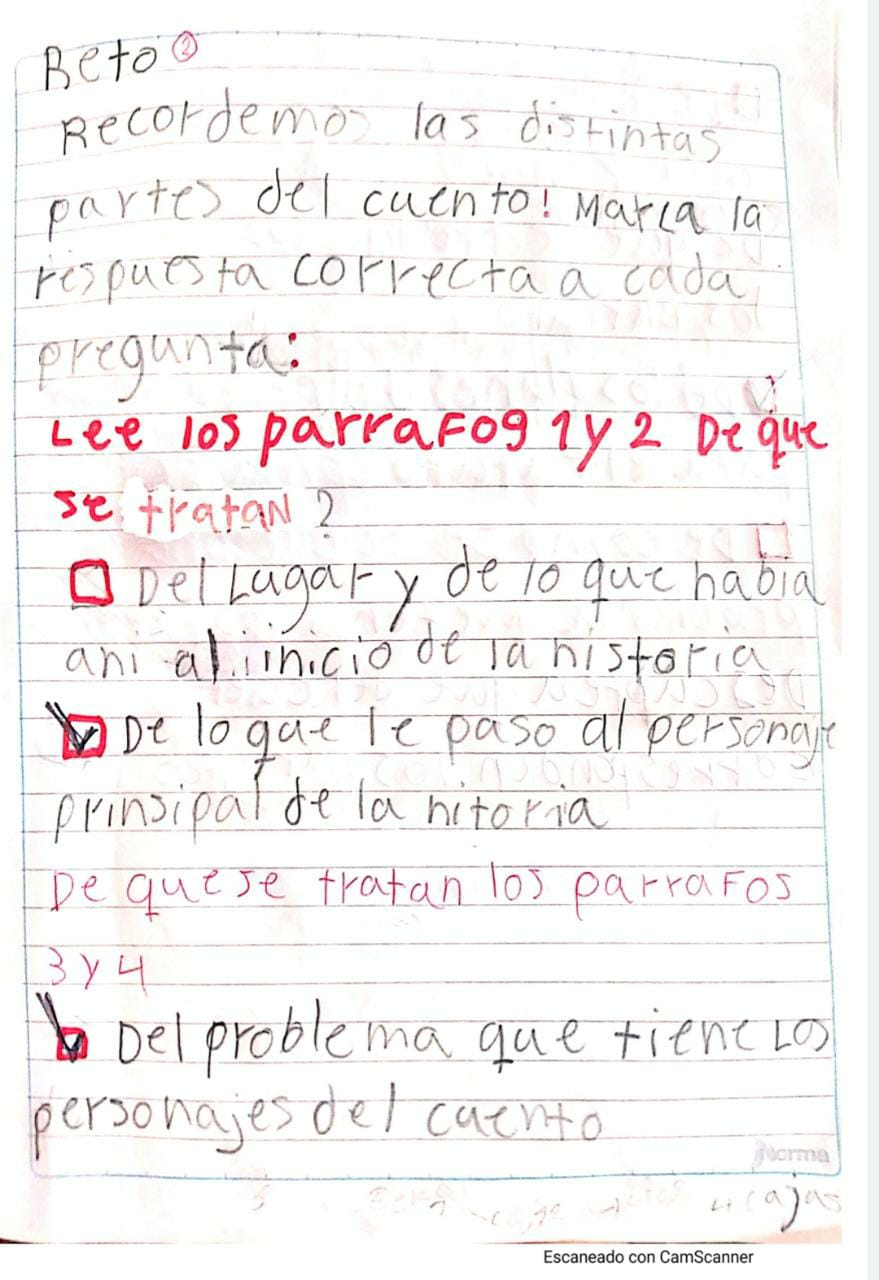 Reto 2
Recordemos las distintas
partes del cuento! Marca la
respuesta correcta a cada
pregunta:
Lee los parrafos 1 y 2 De que
se tratan ?
Del Lugar y de lo que habia
ahi al iinicio de la historia
De lo que le paso al personaje
prinsipal de la hitoria
De que se tratan los parrafos
3 y 4
Del problema que tiene Los
personajes del cuento
Norma
4 cajas
Escaneado con CamScanner